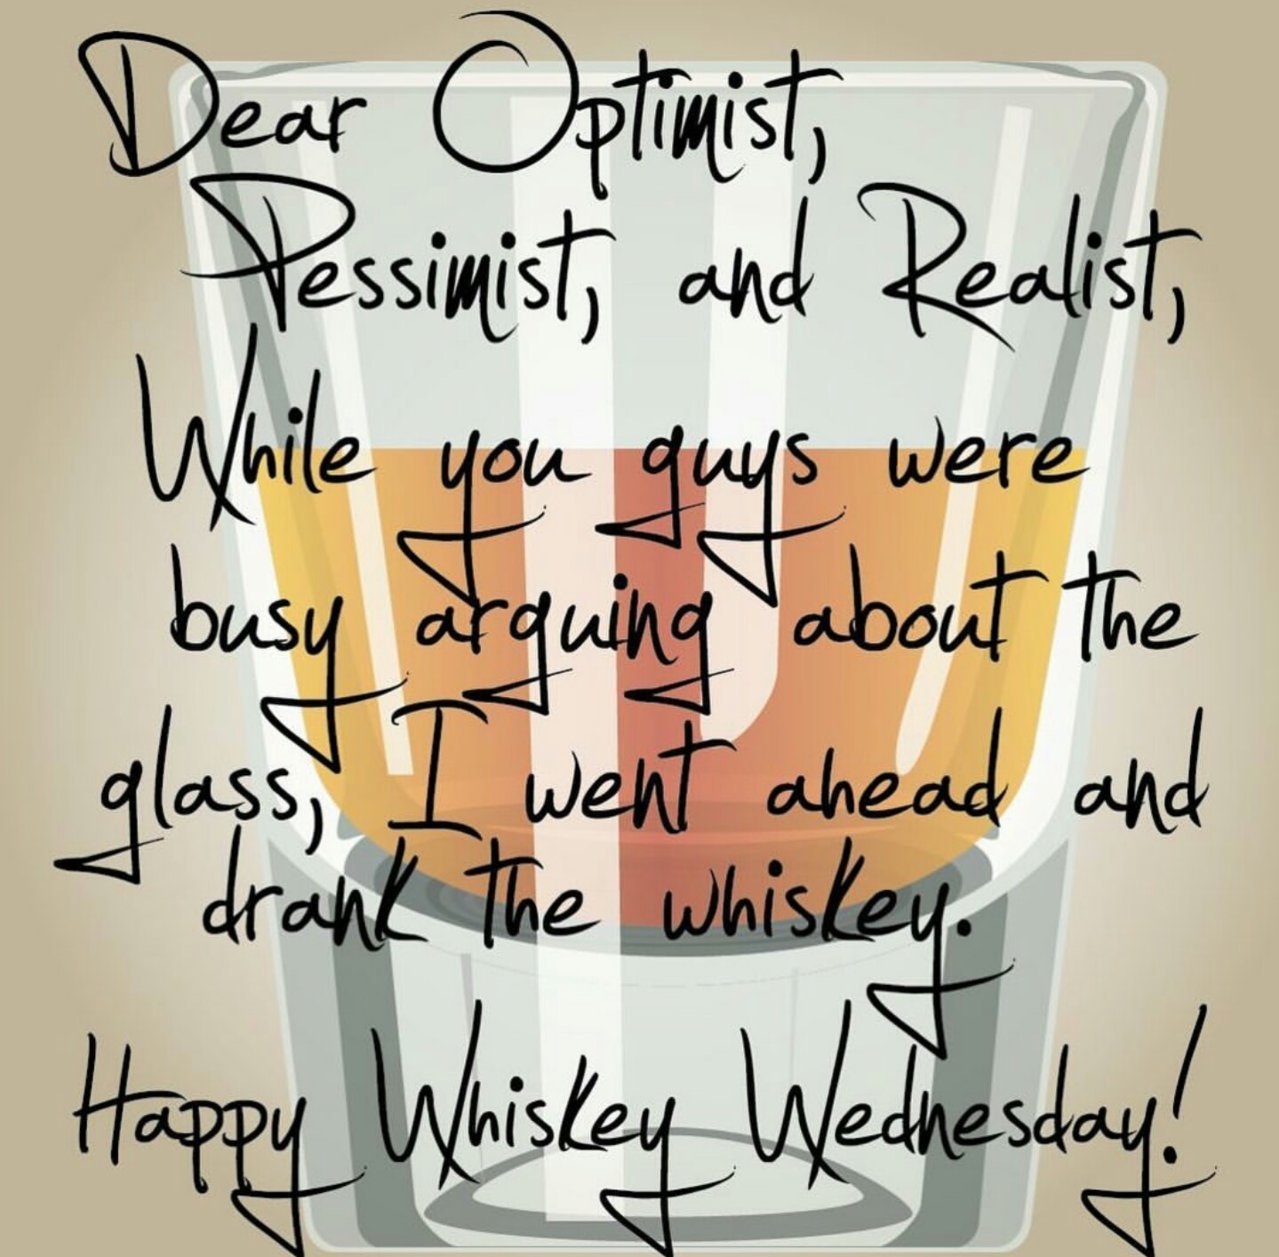 Dear Optimist,
Pessimist, and Realist,
While you guys were
busy arguing about the
glass, I went ahead and
drank the whiskey.
Happy Whiskey Wednesday!